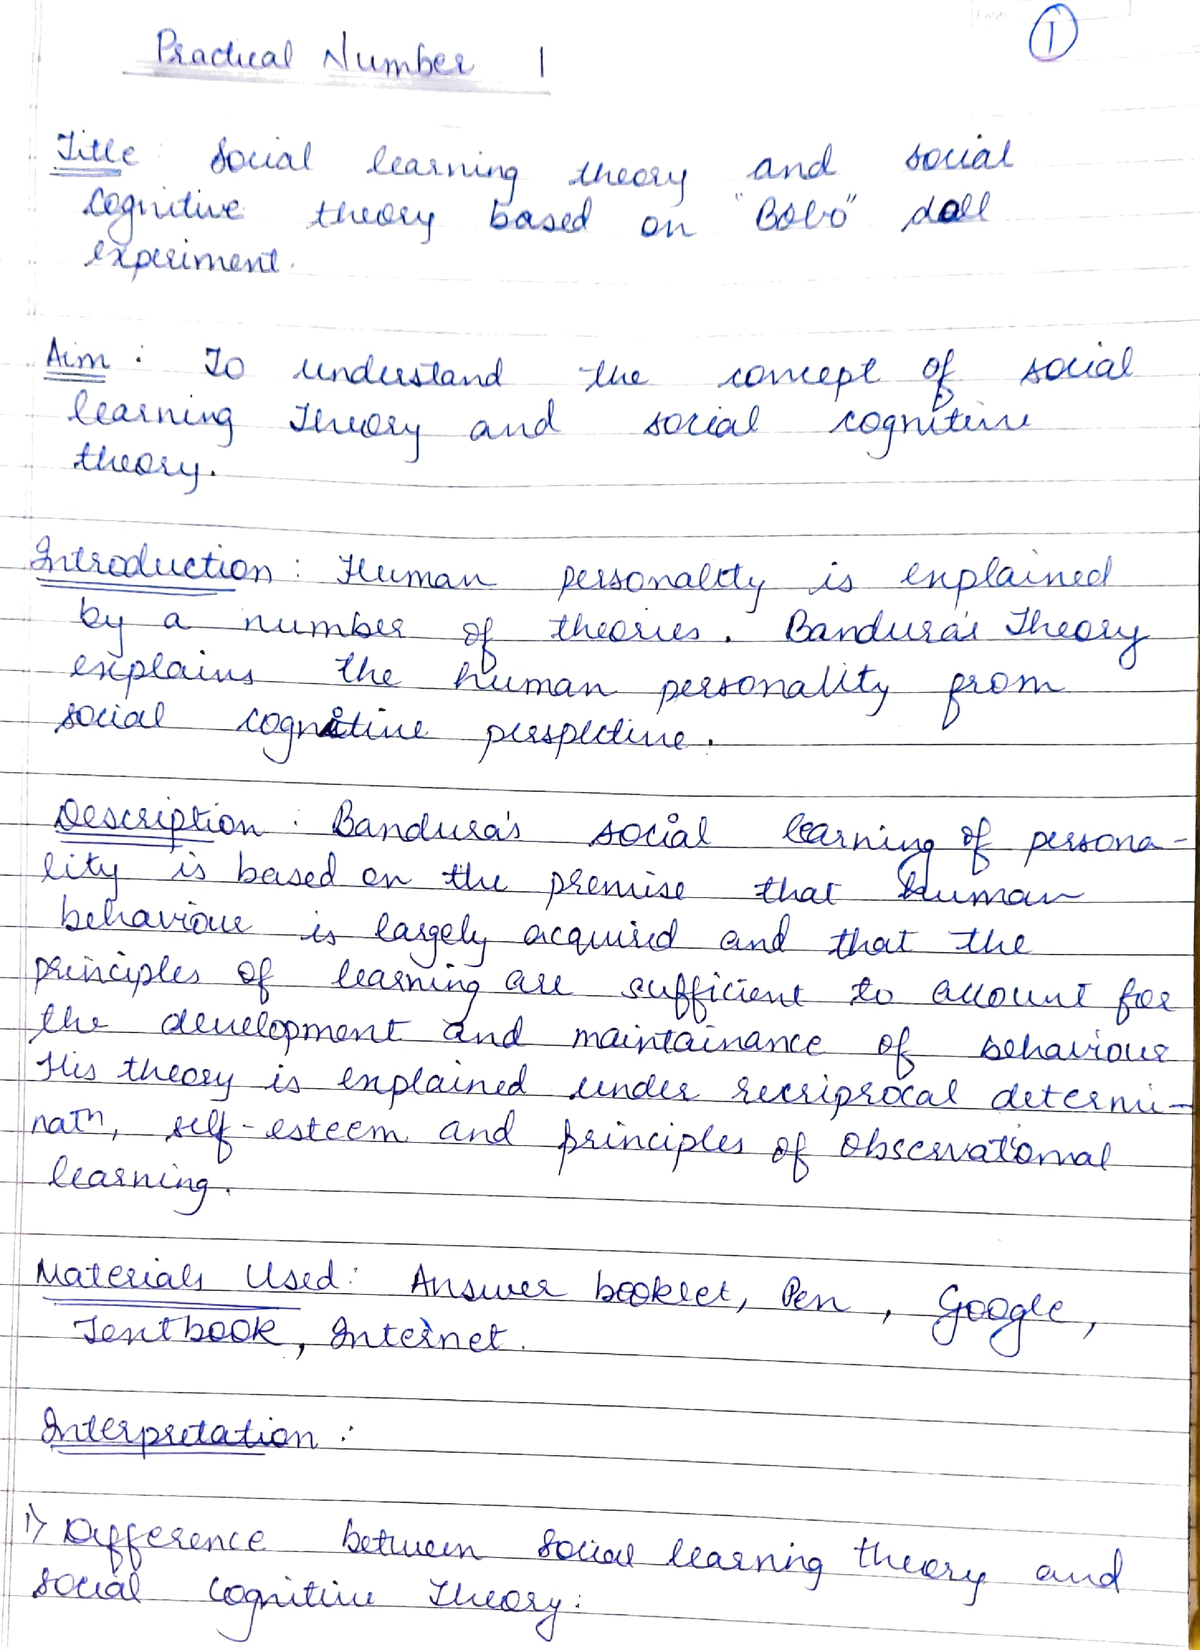 1
Practical Number 1
Title : Social learning theory and social
cognitive theory based on "Bobo" doll
experiment.
Aim : To understand the concept of social
learning Theory and social cognitive
theory.
Introduction : Human personality is explained
by a number of theories. Bandura's Theory
explains the human personality from
social cognitive perspective.
Description : Bandura's social learning of persona-
lity is based on the premise that human
behaviour is largely acquired and that the
principles of learning are sufficient to account for
the development and maintainance of behaviour
His theory is explained under reciprocal determi-
natn, self-esteem and principles of observational
learning.
Materials Used : Answer booklet, Pen, Google,
Textbook, Internet.
Interpretation :
1) Difference between social learning theory and
social cognitive Theory: